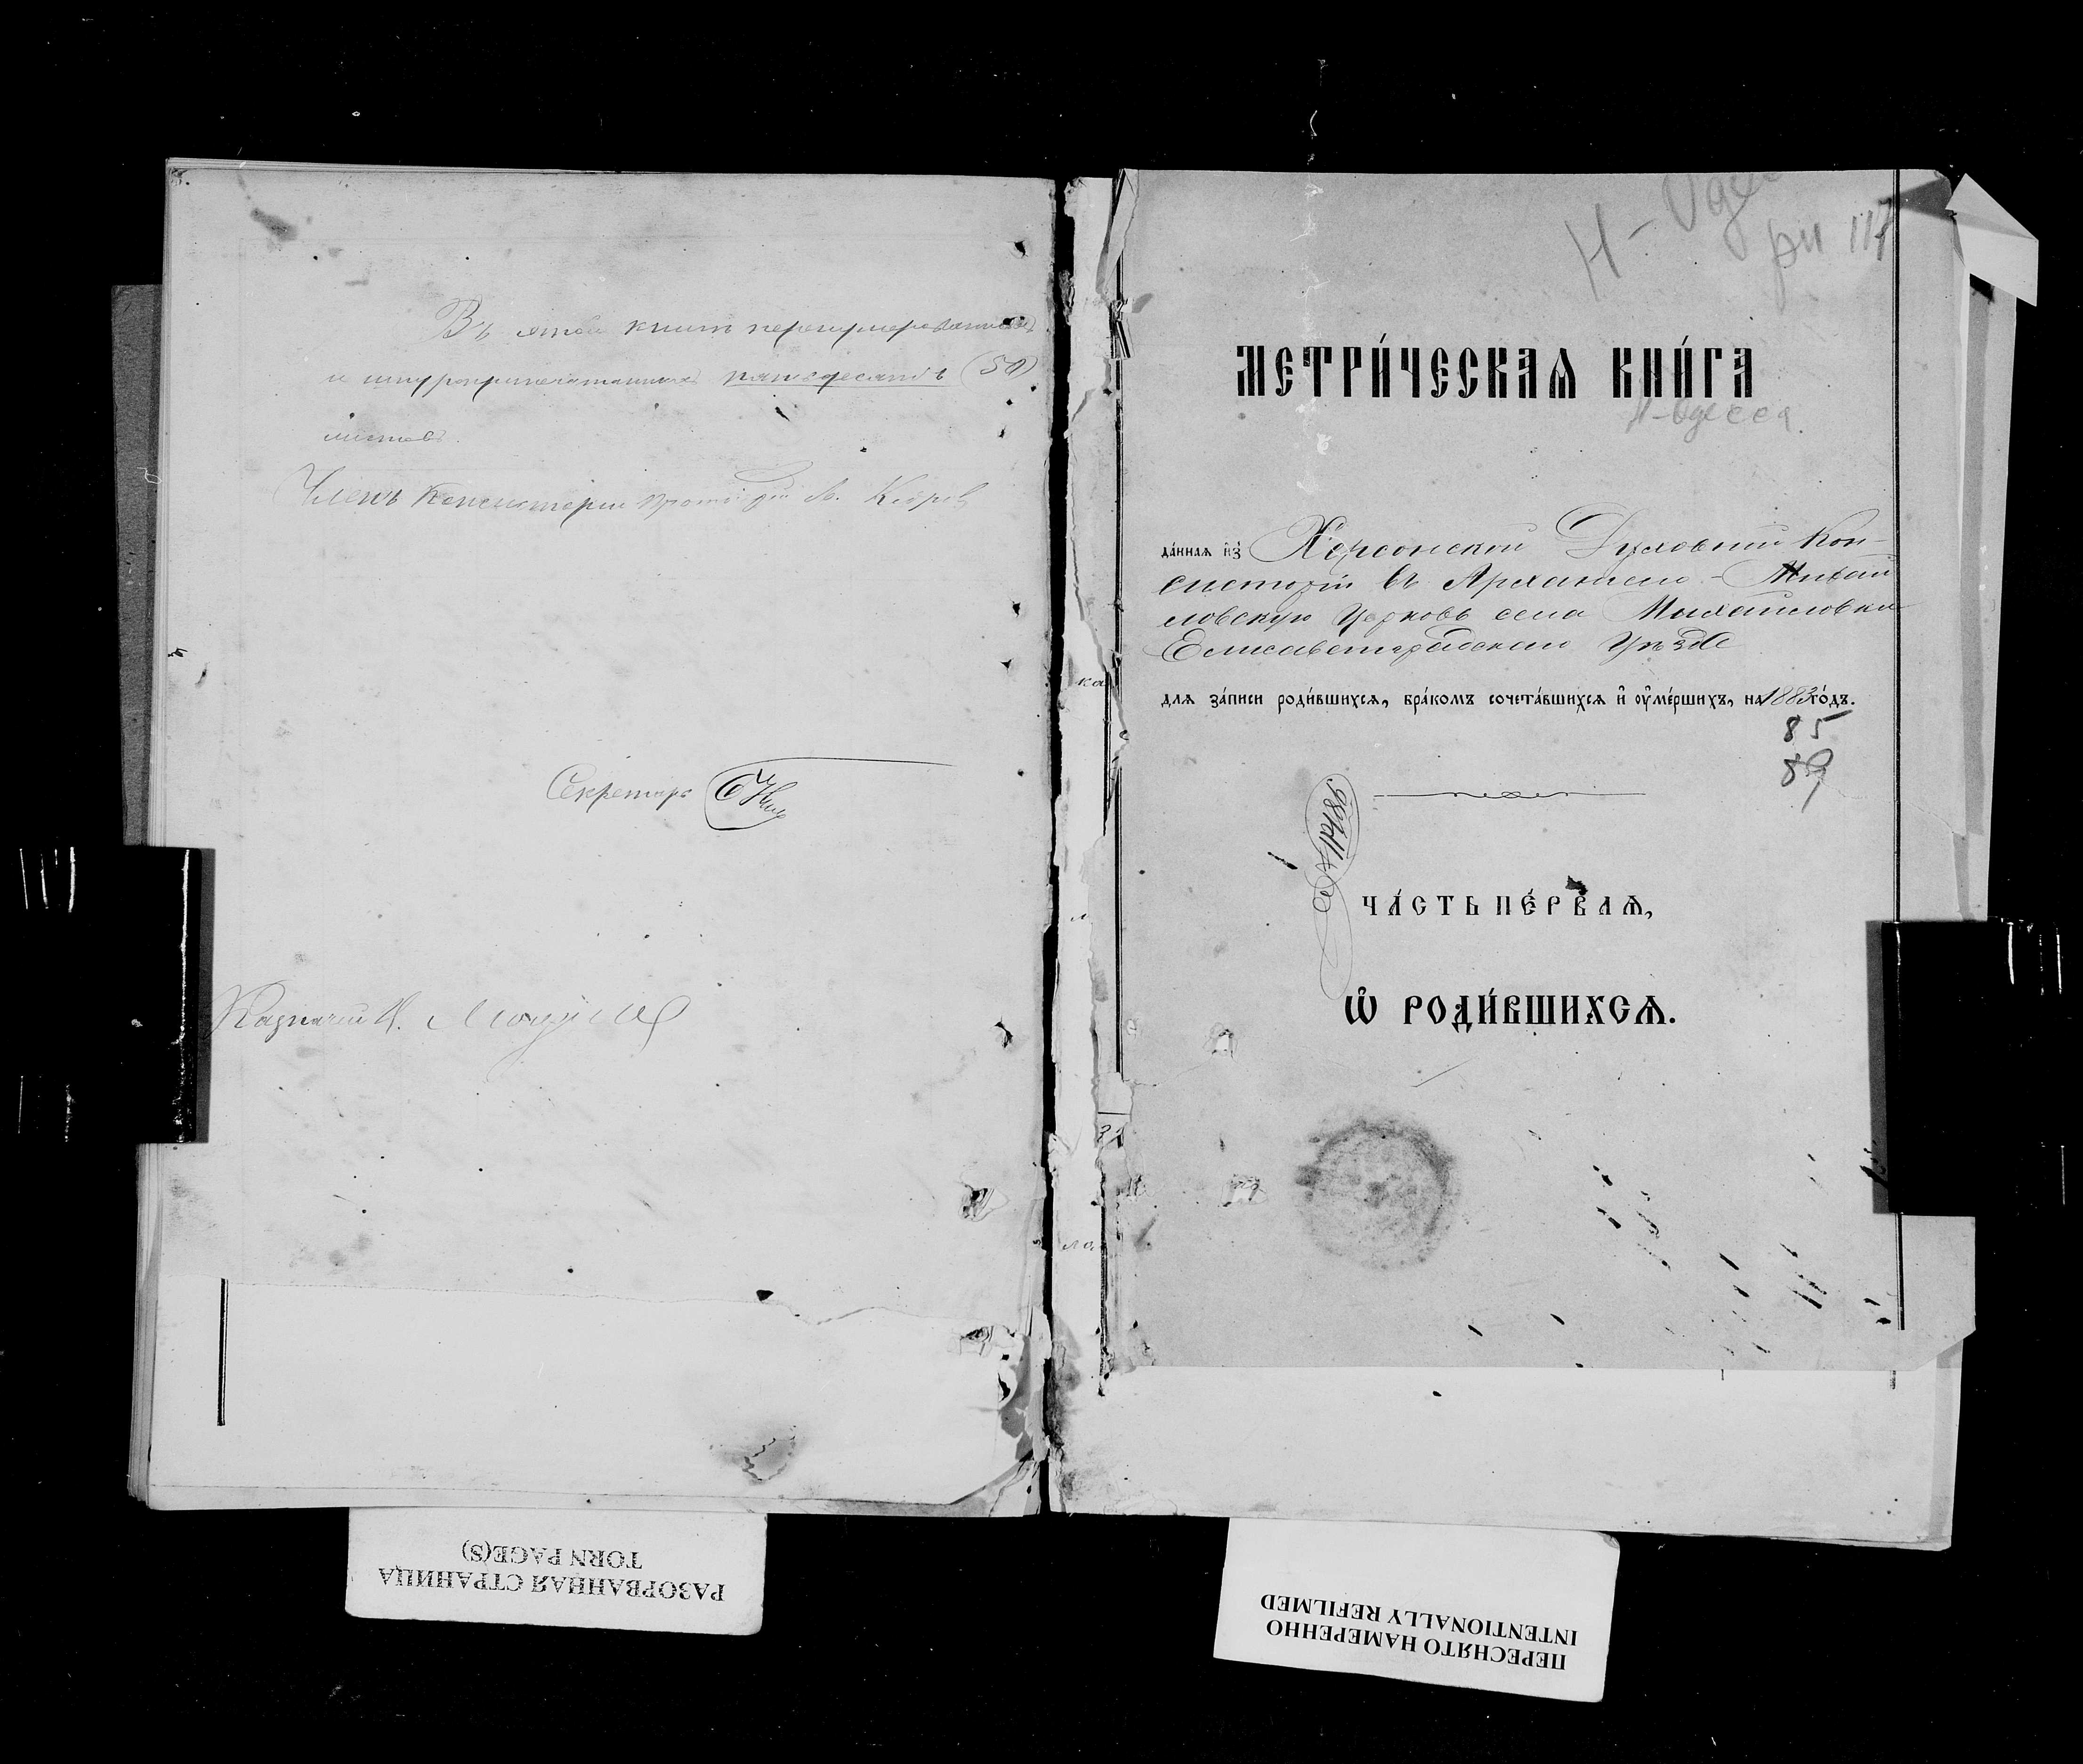 Въ этой книгѣ перенумерованныхъ
и шнуроприпечатанныхъ пятьдесятъ (50)
листовъ.
Членъ Консисторіи
Секретарь
Казначей
Н-Одес
рн 117
МЕТРИ́ЧЕСКАѦ КНИ́ГА
Н-Одесса.
да́ннаѧ и҆зъ Херсонской Духовной Кон-
систоріи въ Архангело-Михай
ловскую Церковь села Михайловки
Елисаветградскаго Уѣзда
длѧ за́писи роди́вшихсѧ, бра́комъ сочета́вшихсѧ и҆ ᲂу҆ме́ршихъ, на 1883 го́дъ.
85
89
ЧА́СТЬ ПЕ́РВАѦ,
Ѽ РОДИ́ВШИХСѦ.
РАЗОРВАННАЯ СТРАНИЦА
TORN PAGE(S)
ПЕРЕСНЯТО НАМЕРЕННО
INTENTIONALLY REFILMED